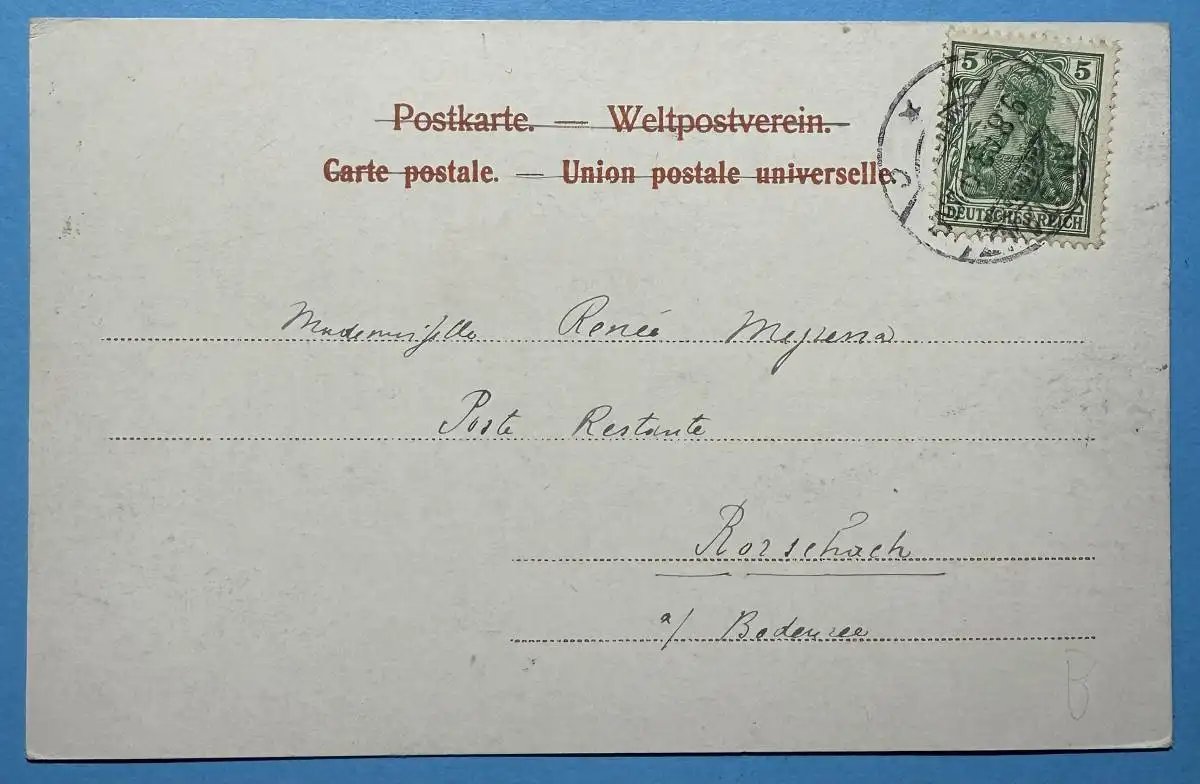 5 5
DEUTSCHES REICH
Postkarte. — Weltpostverein.
Carte postale. — Union postale universelle
Mademoiselle Renée
Poste Restante
Rorschach
a/ Bodensee
B